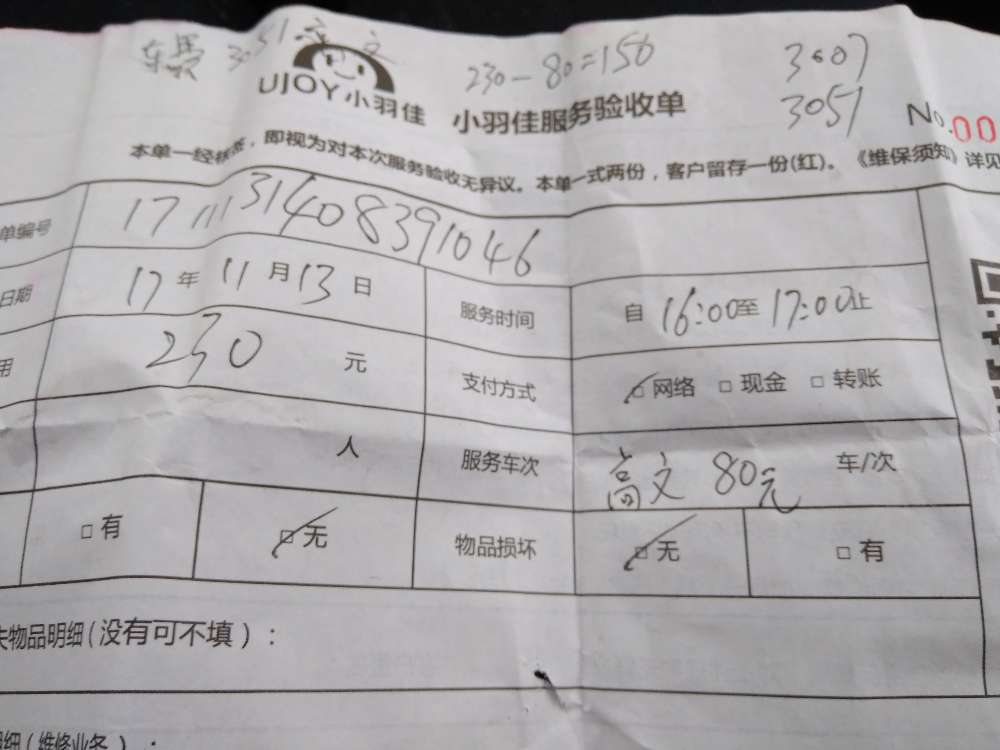 车费 3051 高文
230-80=150
3607
3051
UJOY小羽佳 小羽佳服务验收单
No.00
本单一经核签，即视为对本次服务验收无异议。本单一式两份，客户留存一份(红)。《维保须知》详见
单编号 1711131408391046
日期 17年11月13日 服务时间 自16:00至17:00止
用 230 元 支付方式 □网络 □现金 □转账
人 服务车次 高文 80元 车/次
□有 □无 物品损坏 □无 □有
失物品明细(没有可不填)：
明细(维修业务)：